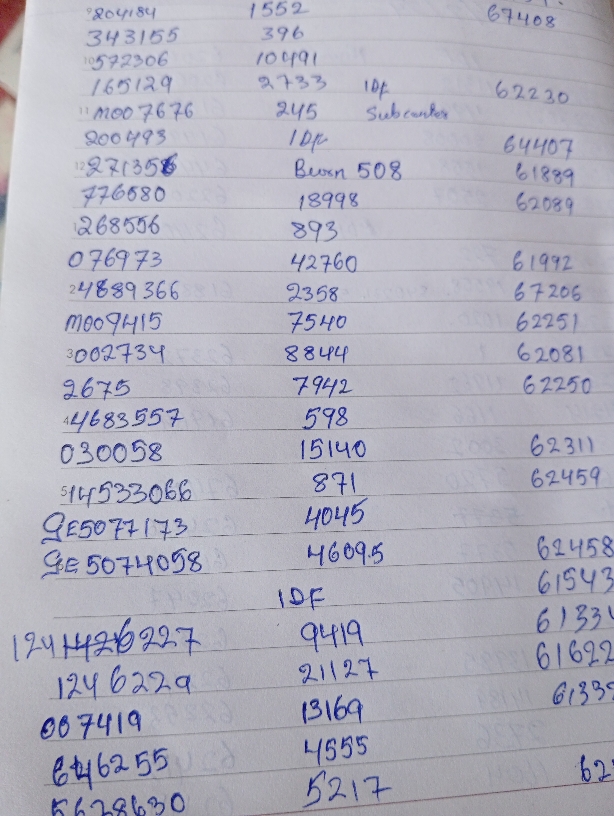 804184 1552 67408
343155 396
10 572306 10491
165129 2733 IDF 62230
11 M007676 245 Subcenter
200493 IDF 64407
12 271356 508 61889
776580 18998 62089
1 268556 893
076973 42760 61992
2 4889366 2358 67206
M009415 7540 62251
3 002734 8844 62081
2675 7942 62250
4 4683557 598
030058 15140 62311
5 14533066 871 62459
GE5077173 4045
GE5074058 46095 62458
IDF 61543
9419
1246229 21127 61622
007419 13169
646255 4555
5628630 5217